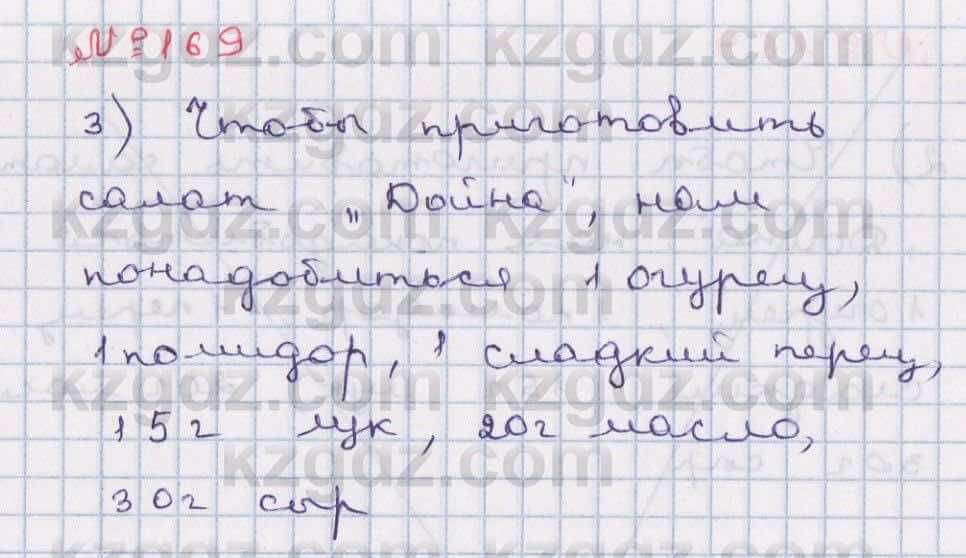 №169
3) Чтобы приготовить
салат „Дойна", нам
понадобиться 1 огурец,
1 помидор, 1 сладкий перец,
15г лук, 20г масло,
30г сыр